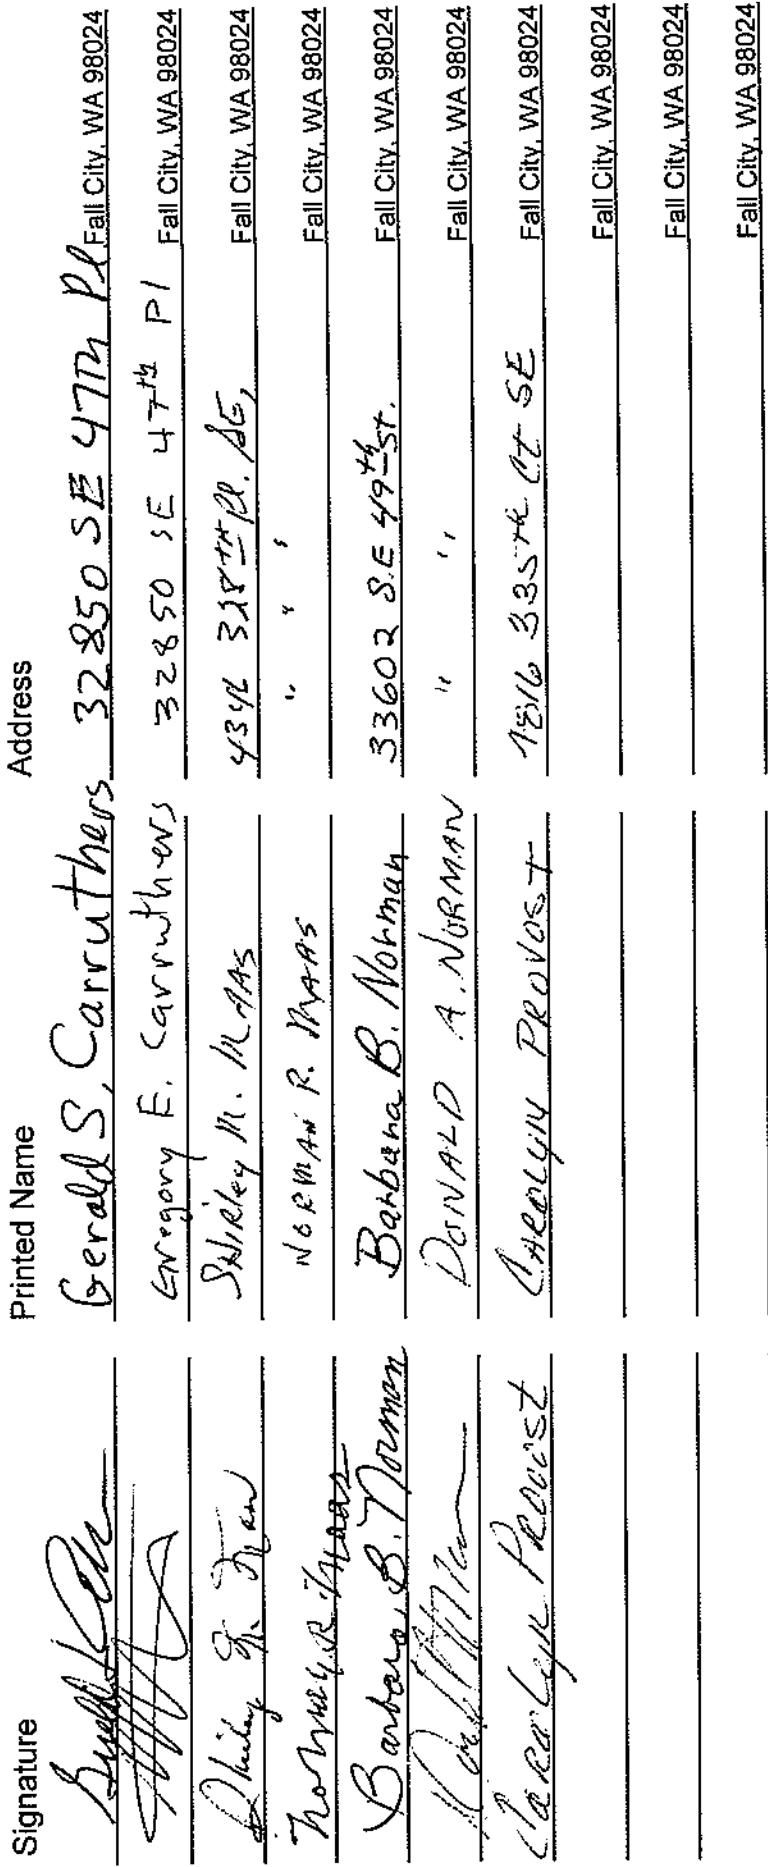 Signature Printed Name Address
Gerald S. Carruthers 32850 SE 47th Pl Fall City, WA 98024
Gregory E. Carruthers 32850 SE 47th Pl Fall City, WA 98024
Shirley M. Maas Shirley M. MAAS 328TH Pl. SE, Fall City, WA 98024
Norman R. Maas NORMAN R. MAAS " " " Fall City, WA 98024
Barbara B. Norman Barbara B. Norman 33602 S.E 49th St. Fall City, WA 98024
DONALD A. NORMAN " " Fall City, WA 98024
Carolyn Provost CAROLYN PROVOST 1816 335th Ct SE Fall City, WA 98024
Fall City, WA 98024
Fall City, WA 98024
Fall City, WA 98024